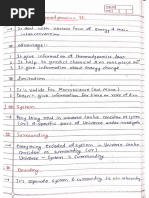 Thermodynamics II
→ It deal with various form of energy & their
interconversion
# advantages:-
1) It is foundation of thermodynamics law
2) It help to predict chemical rxn take place or not
3) It give information about Energy change
# limitation
1) It is valid for Macroscopic
Doesn't give information for time or rate of rxn
# System
→ Any thing used in universe can be consider as system
(or) A specific part of Universe under analysis
# Surrounding
→ Everything excluded of system in Universe can be
consider as surrounding (or)
Universe - System = Surrounding
# Boundary
→ It's seperate system & surrounding